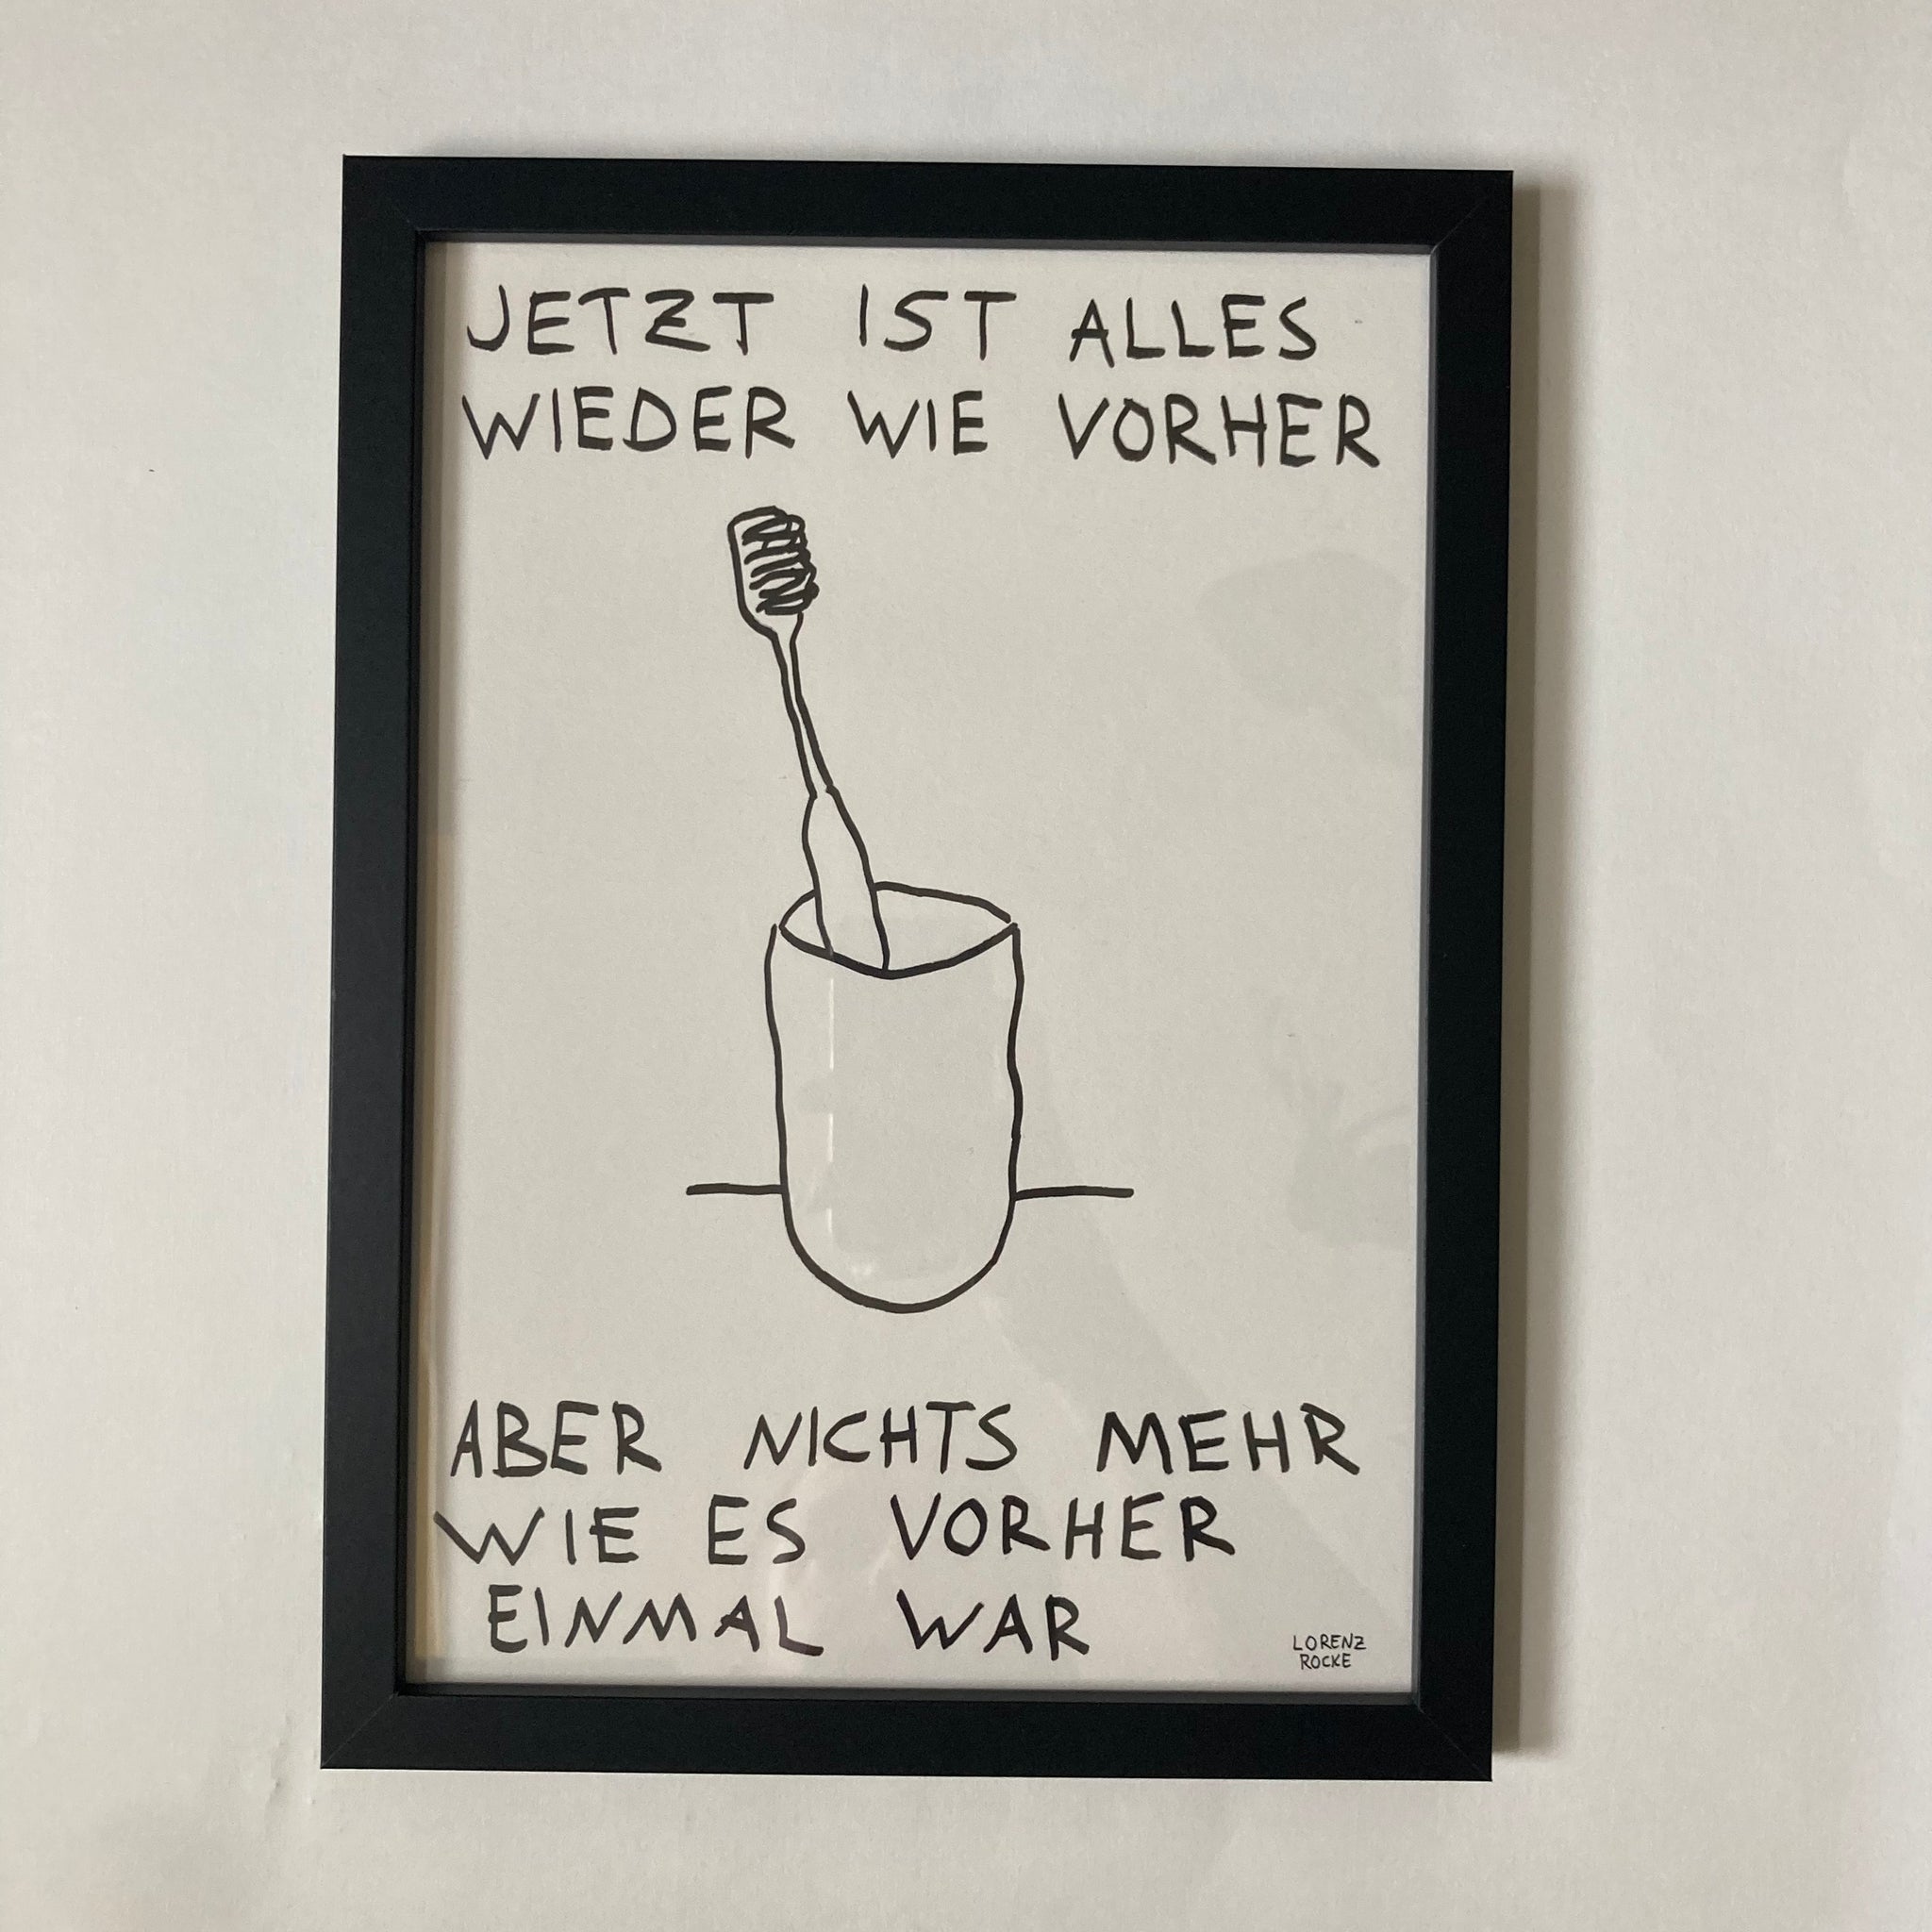 JETZT IST ALLES
WIEDER WIE VORHER
ABER NICHTS MEHR
WIE ES VORHER
EINMAL WAR
LORENZ
ROCKE